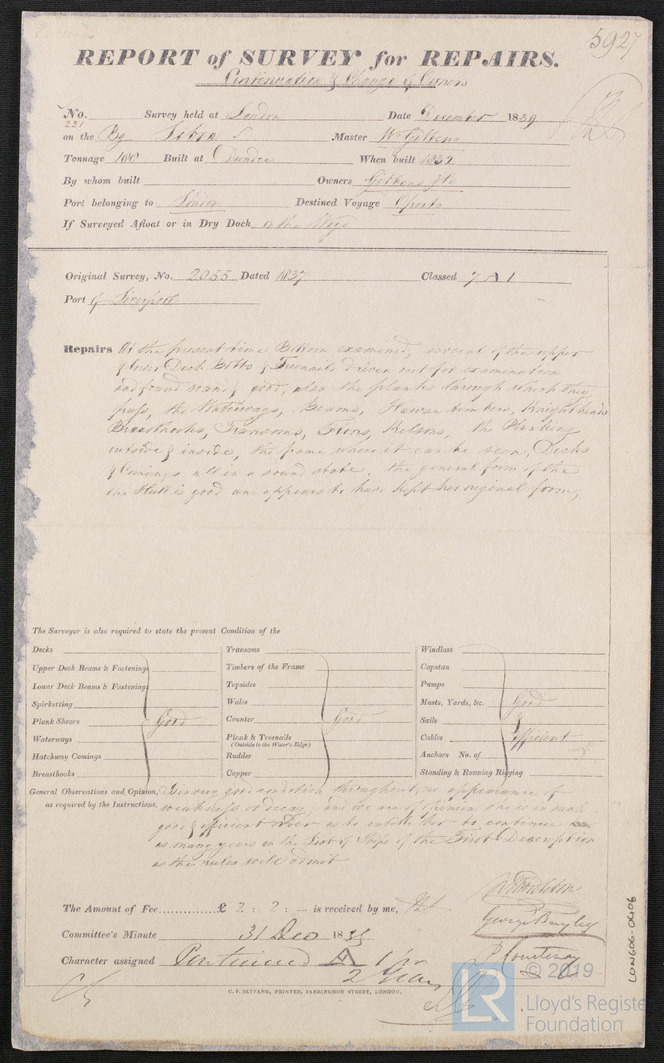 5927
REPORT of SURVEY for REPAIRS.
Continuation & Change of Owners
No. 231 Survey held at London Date December 1839
on the Bg Zebra Master W Gibbons
Tonnage 160 Built at Dundee When built 1832
By whom built Owners Gibbons & Co
Port belonging to London Destined Voyage Oporto
If Surveyed Afloat or in Dry Dock on the Ways
Original Survey, No. 2055 Dated 1837 Classed 7 A 1
Port of Liverpool
Repairs At the present time Bottom examined, several of the upper
& lower Deck Bolts & Treenails driven out for examination
and found sound & good, also the planks through which they
pass, the Waterways, Beams, Hawse timbers, Knightheads
Breasthooks, Transoms, Floors, Kelsons, the Planking
outside & inside, the frame where it can be seen, Decks
& Comings all in a sound state, the general form of the
Hull is good and appears to have kept her original form,
The Surveyor is also required to state the present Condition of the
Decks Transoms Windlass
Upper Deck Beams & Fastenings Timbers of the Frame Capstan
Lower Deck Beams & Fastenings Topsides Pumps
Spirketting Wales Masts, Yards, &c. Good
Plank Shears Good Counter Good Sails &
Waterways Plank & Treenails Cables efficient
(Outside to the Water's Edge)
Hatchway Comings Rudder Anchors No. of
Breasthooks Copper Standing & Running Rigging
General Observations and Opinion, Is in very good condition throughout, no appearance of
as required by the Instructions. weakness or decay, and we are of opinion she is in such
good & efficient order as to entitle her to continue
as many years on the List of Ships of the First Description
as the rules will admit
The Amount of Fee £ 2 : 2 : - is received by me,
George Bayley
Committee's Minute 31 Dec 1839
P Courtenay
Character assigned Continued A 1 for
2 Years
C. F. SEYFANG, PRINTER, FARRINGDON STREET, LONDON.
LON606-0406
© 2019
LR
Lloyd's Register
Foundation